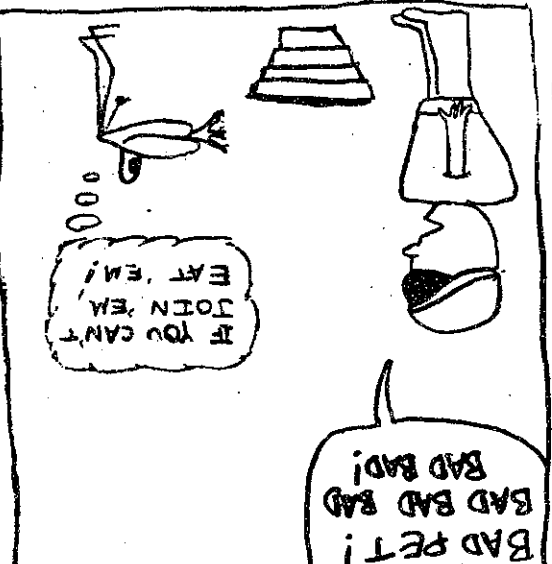 BAD PET!
BAD BAD BAD
BAD BAD!
IF YOU CAN'T
JOIN 'EM,
EAT 'EM!